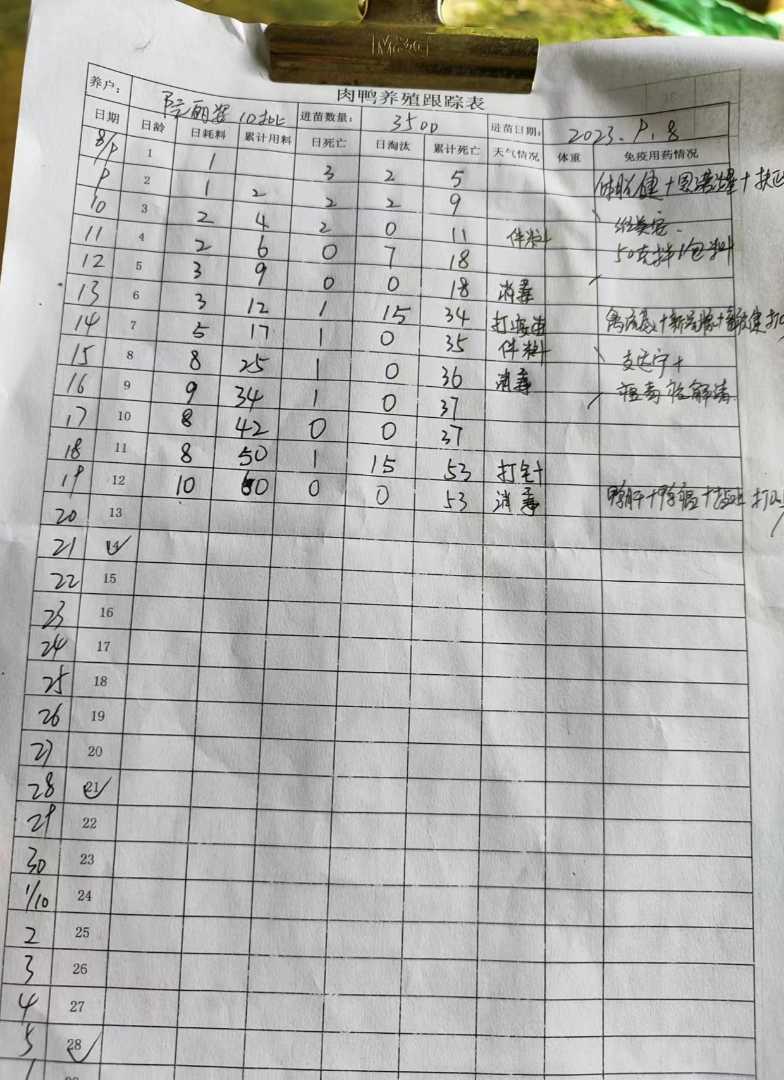 肉鸭养殖跟踪表
养户： 10批 进苗数量： 3500 进苗日期： 2023.9.8
日期 日龄 日耗料 累计用料 日死亡 日淘汰 累计死亡 天气情况 体重 免疫用药情况
8/9 1 1 3 2 5
9 2 1 2 2 2 9
10 3 2 4 2 0 11
11 4 2 6 0 7 18 50克拌1包料
12 5 3 9 0 0 18 消毒
13 6 3 12 1 15 34
14 7 5 17 1 0 35
15 8 8 25 1 0 36 消毒
16 9 9 34 1 0 37
17 10 8 42 0 0 37
18 11 8 50 1 15 53 打针
19 12 10 60 0 0 53 消毒
20 13
21 14
22 15
23 16
24 17
25 18
26 19
27 20
28 21
29 22
30 23
1/10 24
2 25
3 26
4 27
5 28